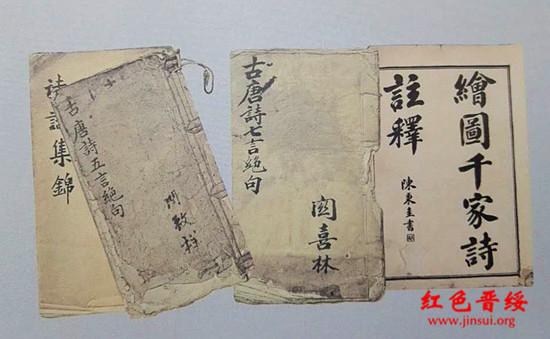 集錦
古唐詩五言絶句
古唐詩七言絶句
喜林
繪圖千家詩
註釋
陳東圭書
红色晋绥
www.jinsui.org